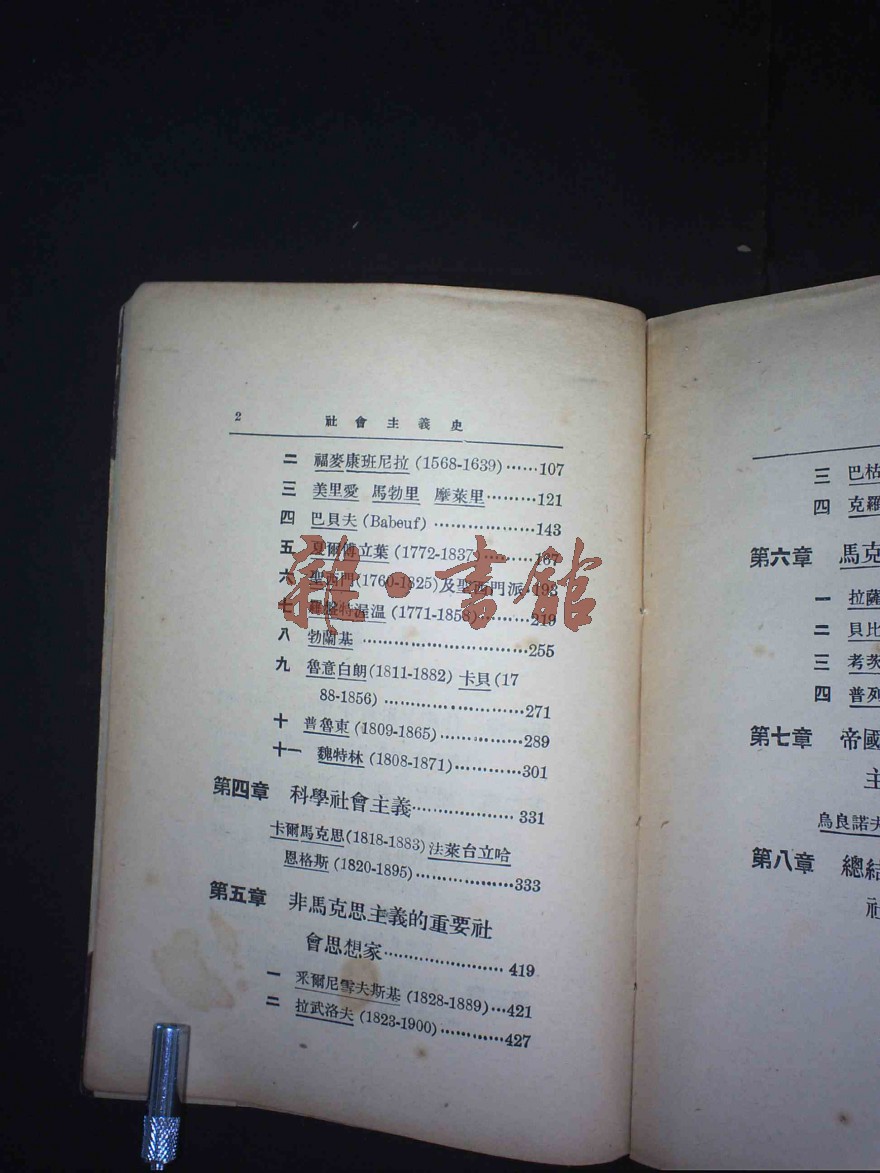 2 社會主義史
二 福麥康班尼拉 (1568-1639)……107
三 美里愛 馬勃里 摩萊里………121
四 巴貝夫 (Babeuf) ………………143
五 夏爾傅立葉 (1772-1837)………167
六 聖西門(1760-1825)及聖西門派·193
七 羅盤特渥温 (1771-1858)………219
八 勃蘭基 …………………………255
九 魯意白朗(1811-1882) 卡貝(17
88-1856) ……………………271
十 普魯東 (1809-1865)………………289
十一 魏特林 (1808-1871)…………301
第四章 科學社會主義………………331
卡爾馬克思(1818-1883)法萊台立哈
恩格斯 (1820-1895)………………333
第五章 非馬克思主義的重要社
會思想家…………………419
一 釆爾尼雪夫斯基 (1828-1889)…421
二 拉武洛夫 (1823-1900)…………427
三 巴枯
四 克羅
第六章 馬克
一 拉薩
二 貝比
三 考茨
四 普列
第七章 帝國
主
烏良諾夫
第八章 總結
社
雜·書館